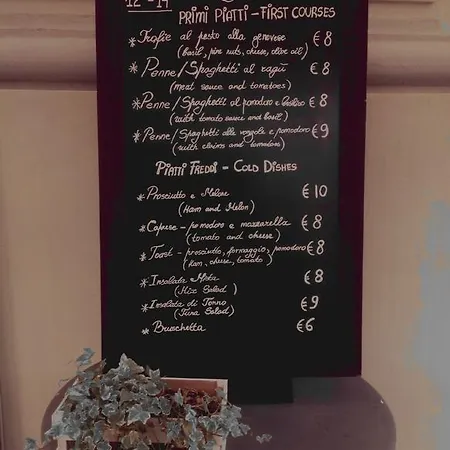 12-14
PRIMI PIATTI - FIRST COURSES
* Trofie al pesto alla genovese € 8
(basil, pine nuts, cheese, olive oil)
* Penne/Spaghetti al ragù € 8
(meat sauce and tomatoes)
* Penne/Spaghetti al pomodoro e basilico € 8
(with tomato sauce and basil)
* Penne/Spaghetti alle vongole e pomodoro € 9
(with clams and tomatoes)
PIATTI FREDDI - COLD DISHES
* Prosciutto e Melone € 10
(Ham and Melon)
* Caprese - pomodoro e mozzarella € 8
(tomato and cheese)
* Toast - prosciutto, formaggio, pomodoro € 8
(ham, cheese, tomato)
* Insalata Mista € 8
(Mix Salad)
* Insalata di Tonno € 9
(Tuna Salad)
* Bruschetta € 6